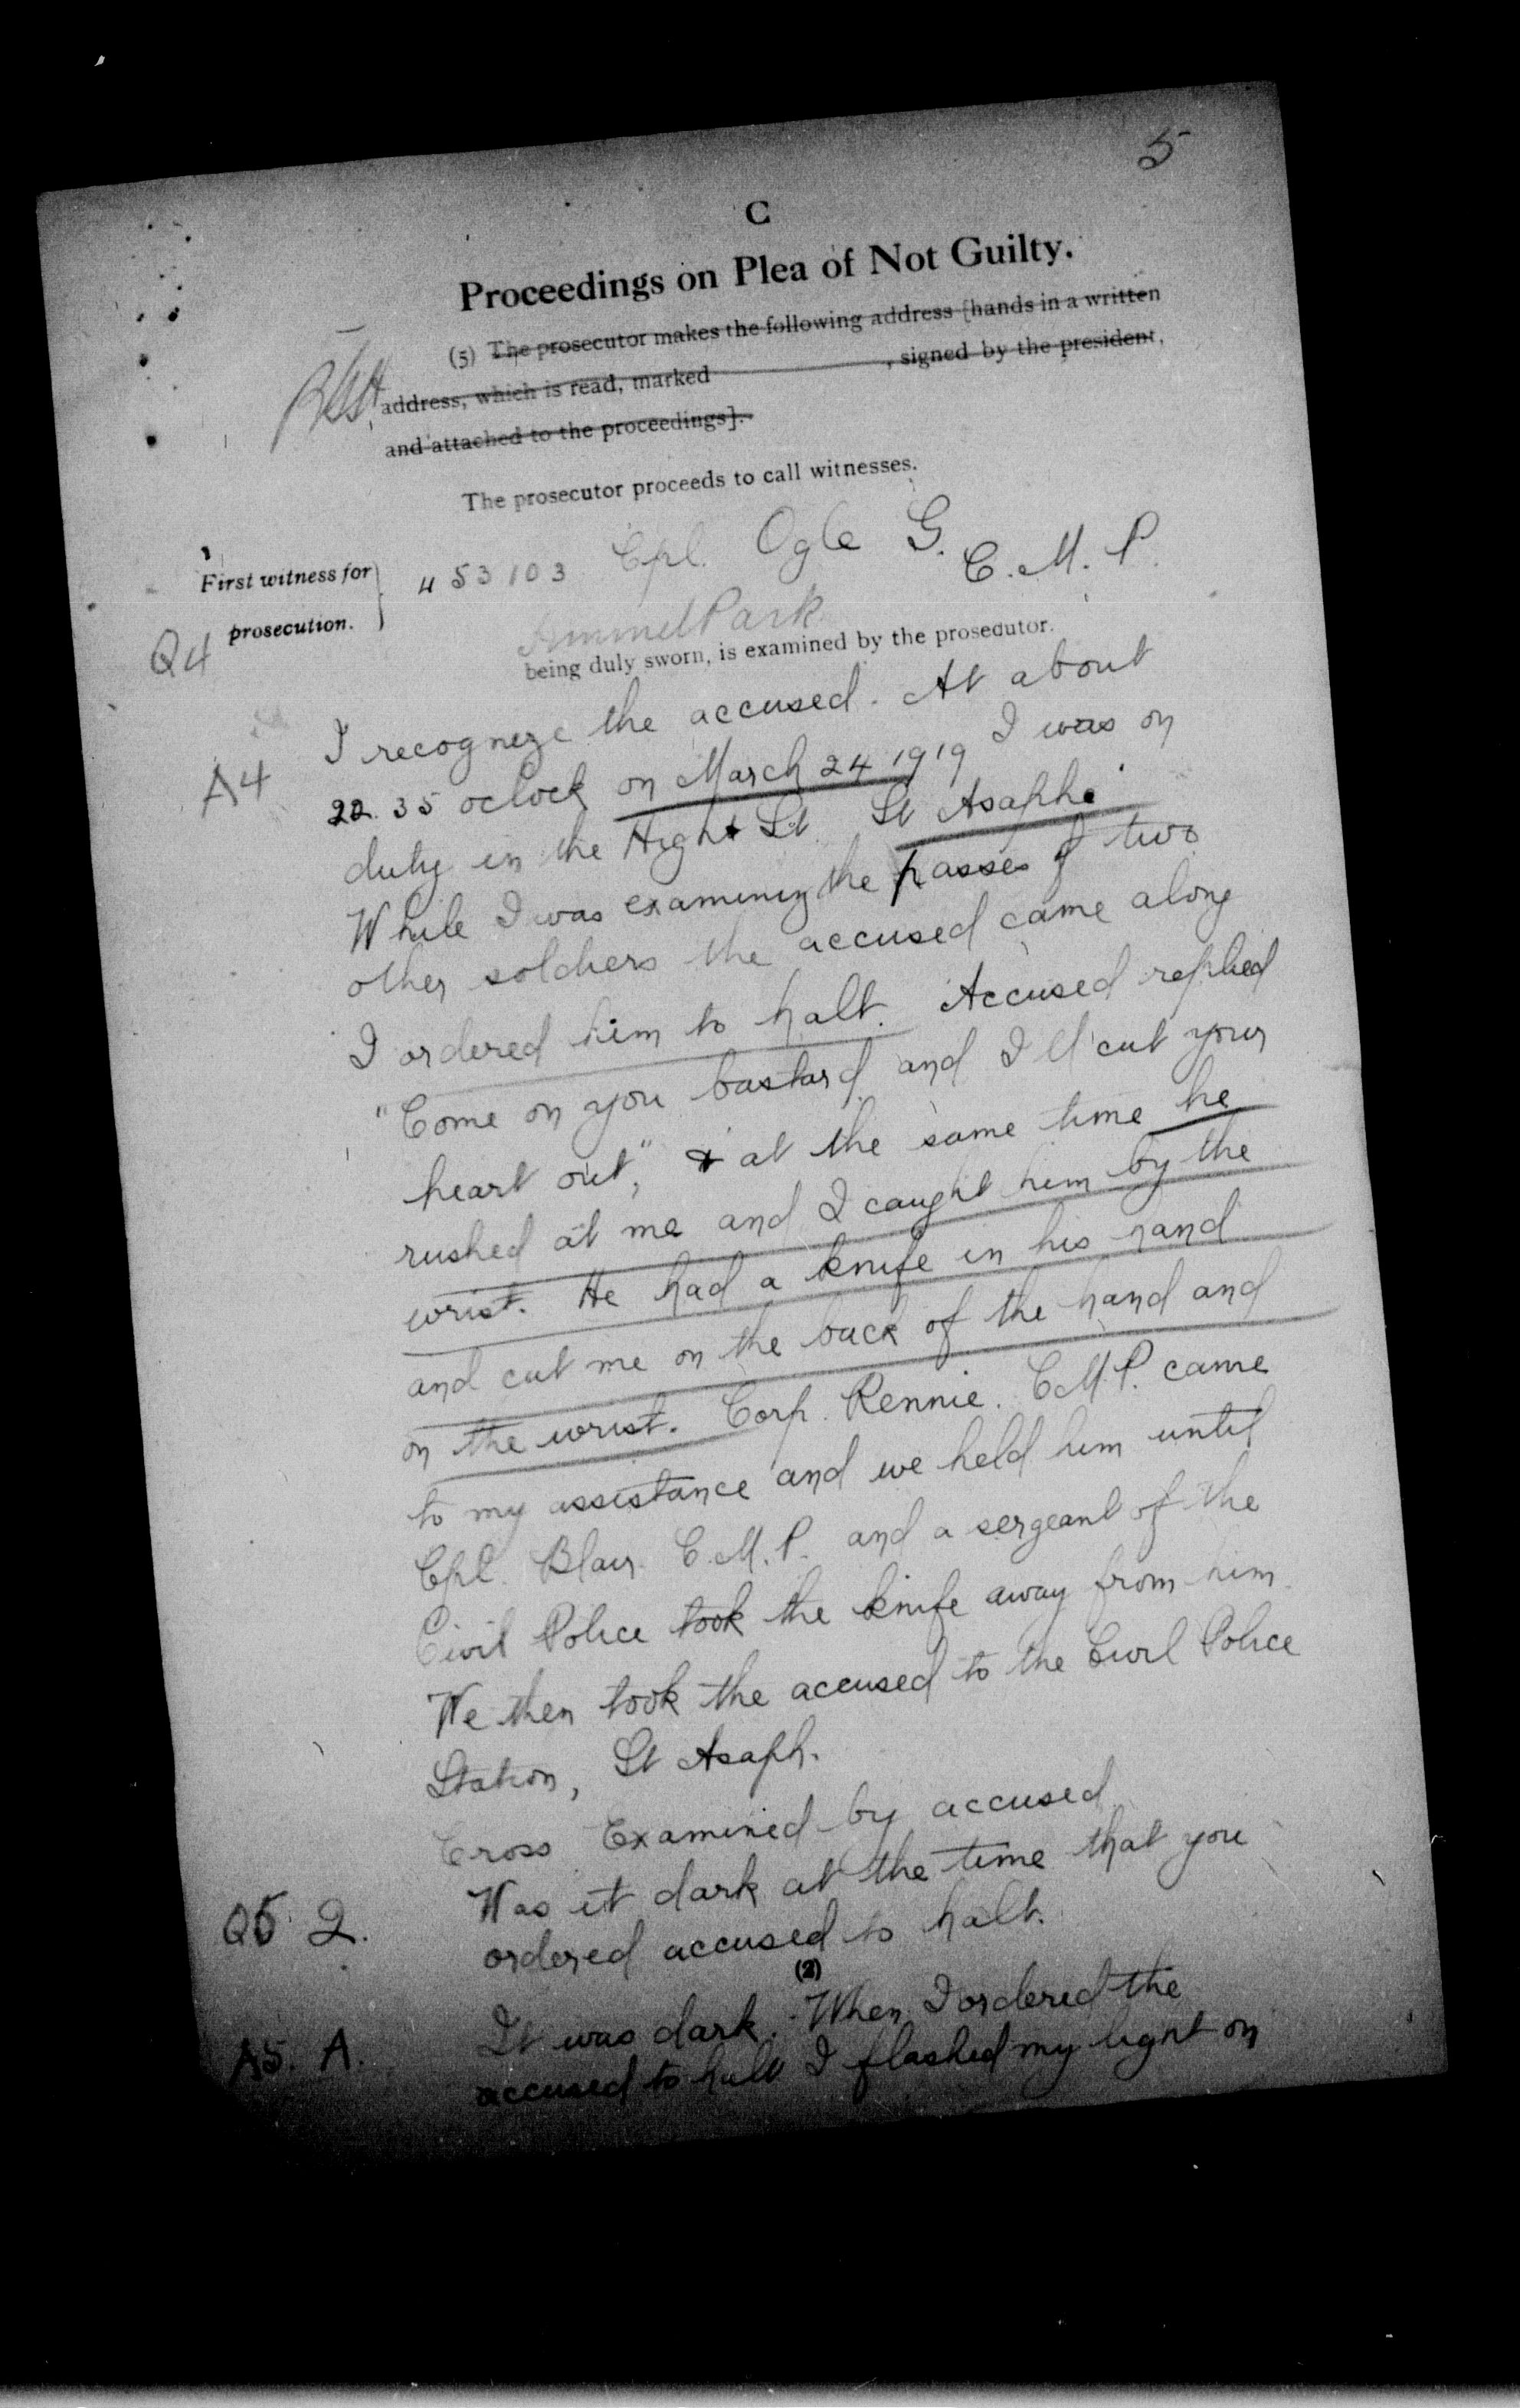 5
C
Proceedings on Plea of Not Guilty.
(5) The prosecutor makes the following address [hands in a written
address, which is read, marked , signed by the president,
and attached to the proceedings].
The prosecutor proceeds to call witnesses.
First witness for
prosecution.
453103 Cpl. Ogle G. C.M.P.
Park
being duly sworn, is examined by the prosecutor.
Q4
A4 I recogneze the accused. At about
22.35 oclock on March 24 1919 I was on
duty in the Hight St. St Asaph.
While I was examining the passes of two
other soldiers the accused came along
I ordered him to halt. Accused replied
"Come on you bastard and I'll cut your
heart out," & at the same time he
rushed at me and I caught him by the
wrist. He had a knife in his hand
and cut me on the back of the hand and
on the wrist. Corp. Rennie. C.M.P. came
to my assistance and we held him until
Cpl. Blair. C.M.P. and a sergeant of the
Civil Police took the knife away from him.
We then took the accused to the Civil Police
Station, St Asaph.
Cross Examined by accused
Q5 Q. Was it dark at the time that you
ordered accused to halt.
(2)
A5. A. It was dark. When I ordered the
accused to halt I flashed my light on